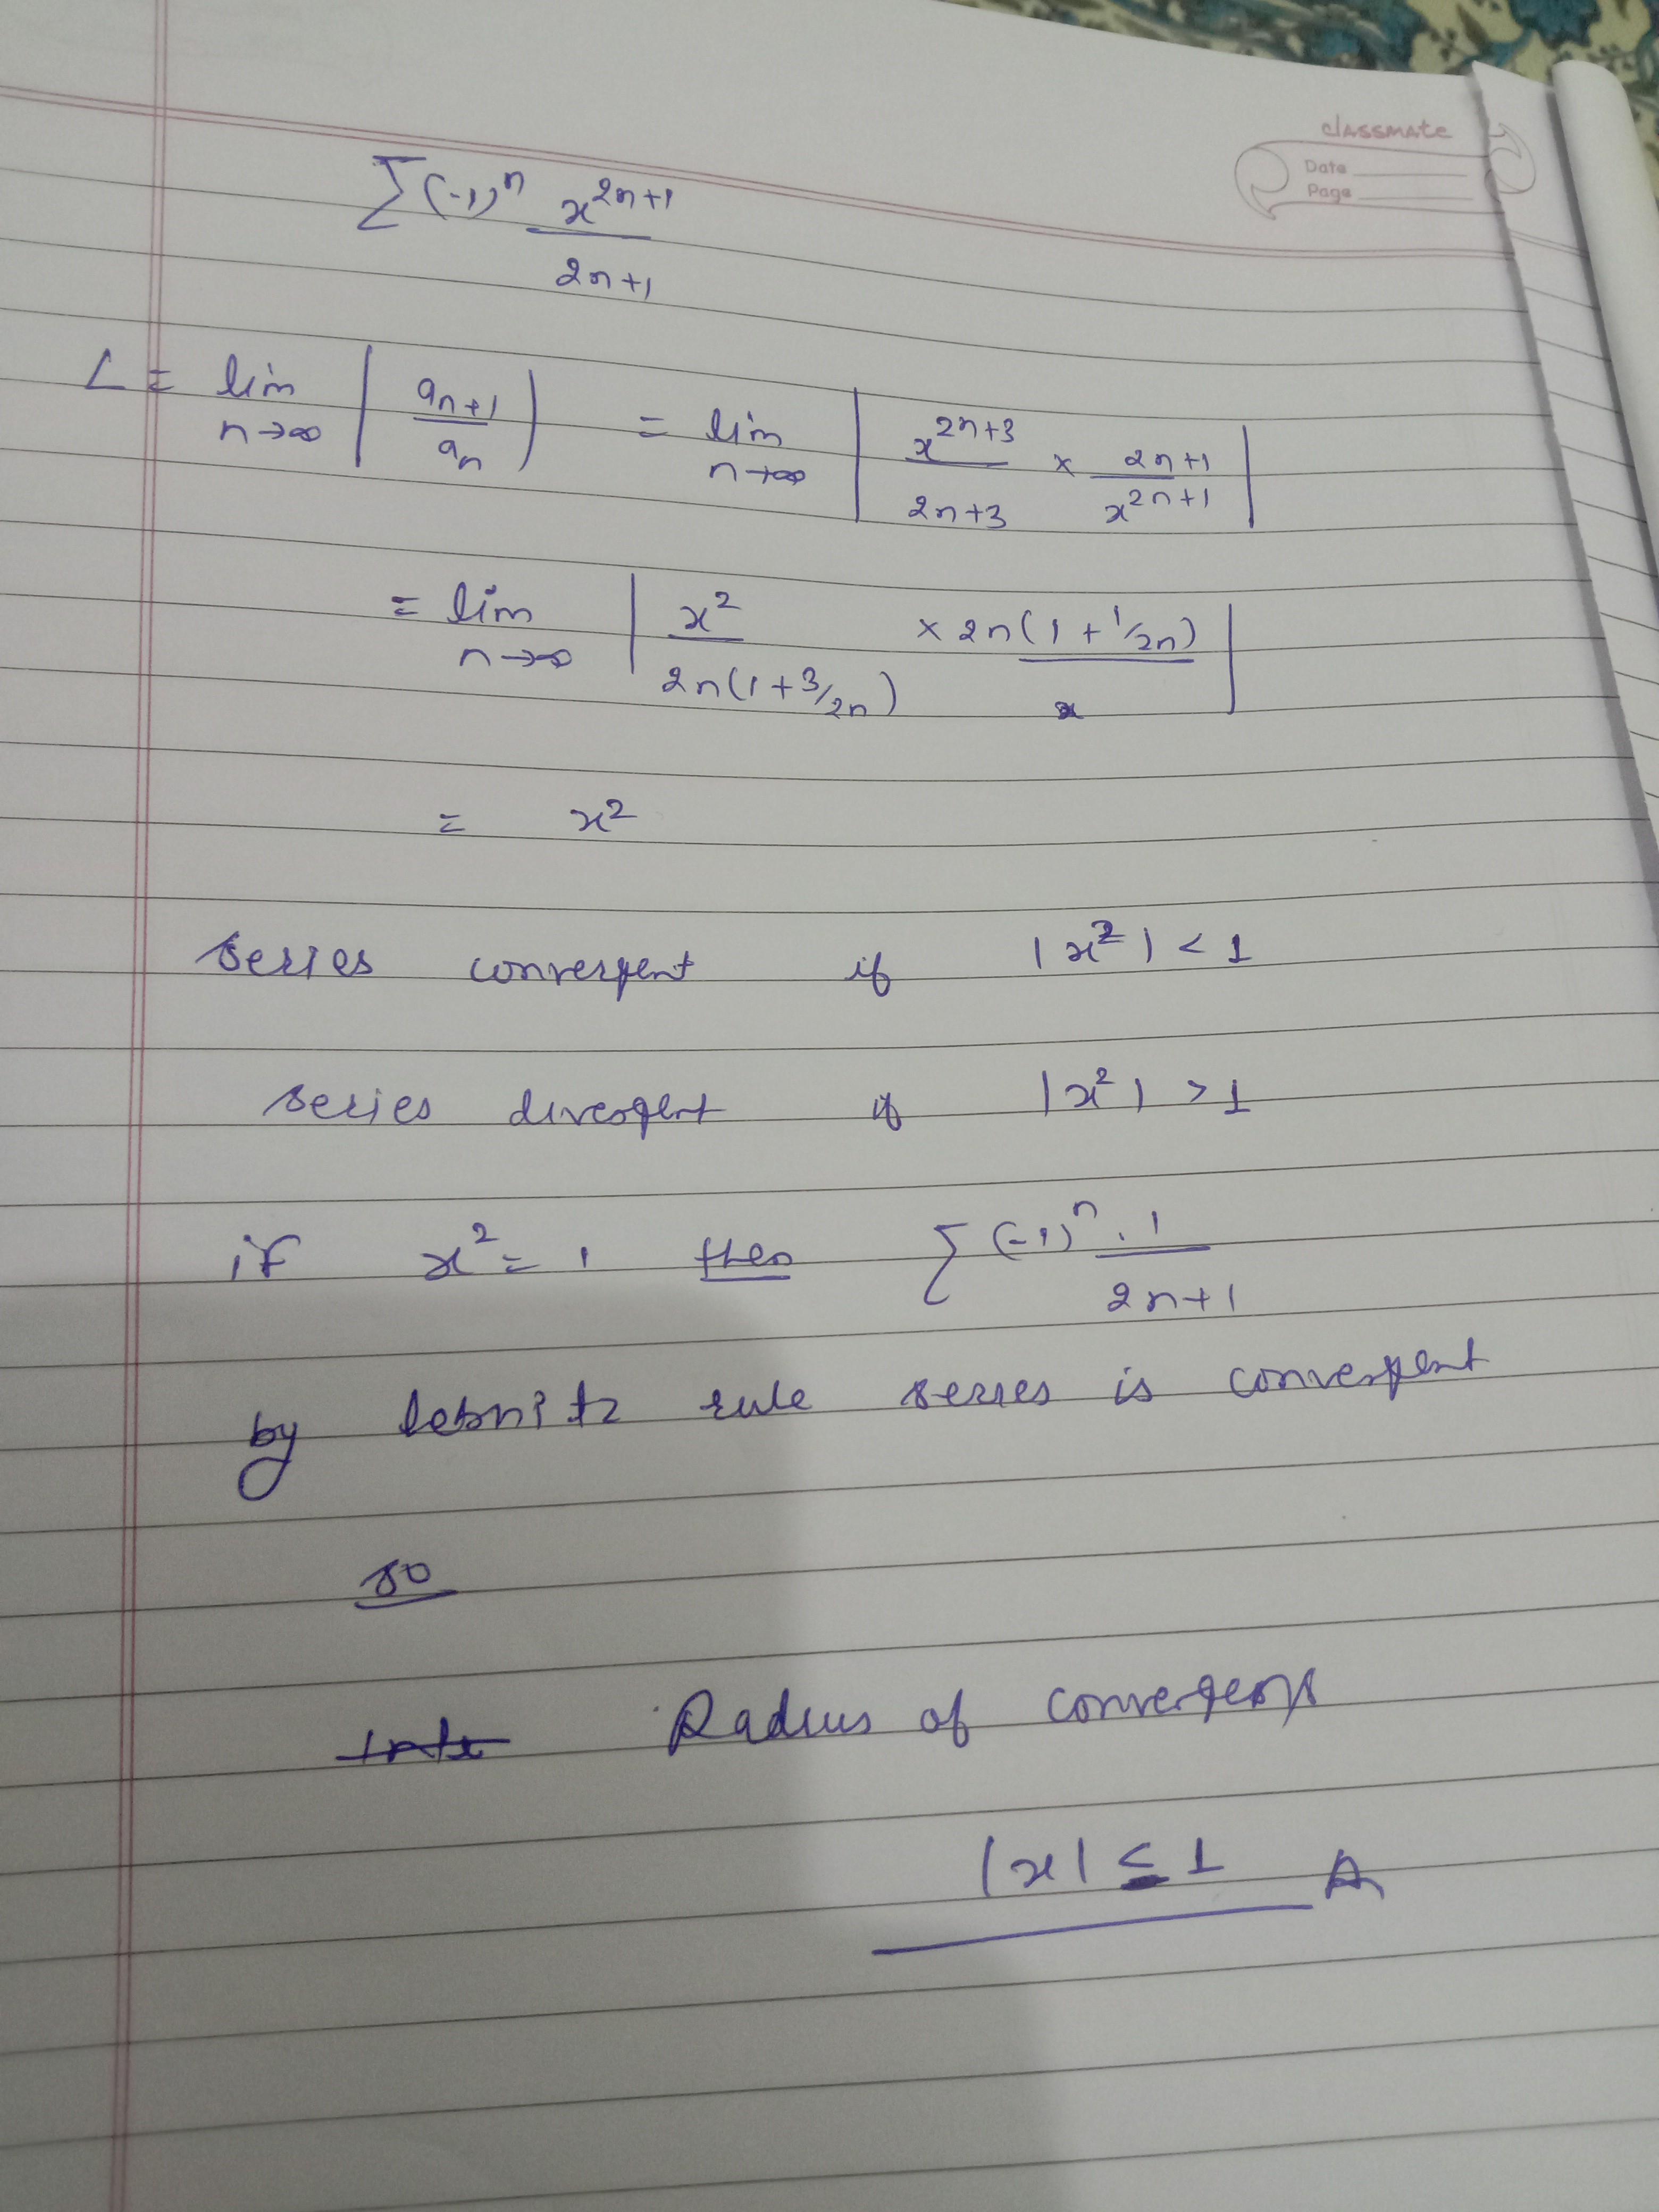 classmate
Date
Page
∑(-1)ⁿ x^{2n+1}/2n+1
L = lim n→∞ |a_{n+1}/a_n| = lim n→∞ |x^{2n+3}/2n+3 × 2n+1/x^{2n+1}|
= lim n→∞ |x²/2n(1+3/2n) × 2n(1+1/2n)|
= x²
series convergent if |x²| < 1
series divergent if |x²| > 1
if x² = 1 then ∑(-1)ⁿ . 1/2n+1
by lebnitz rule series is convergent
so
Radius of convergens
|x| ≤ 1 A